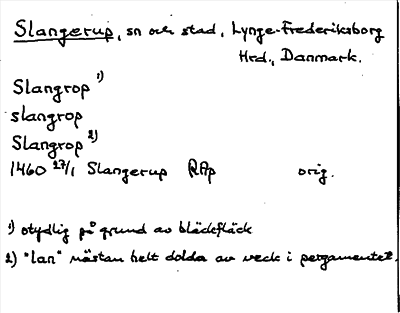 Slangerup, sn och stad, Lynge-Frederiksborg
Hrd., Danmark.
Slangrop 1)
slangrop
Slangrop 2)
1460 27/1 Slangerup RAp orig.
1) otydlig på grund av bläckfläck
2) "lan" nästan helt dolda av veck i pergamentet.